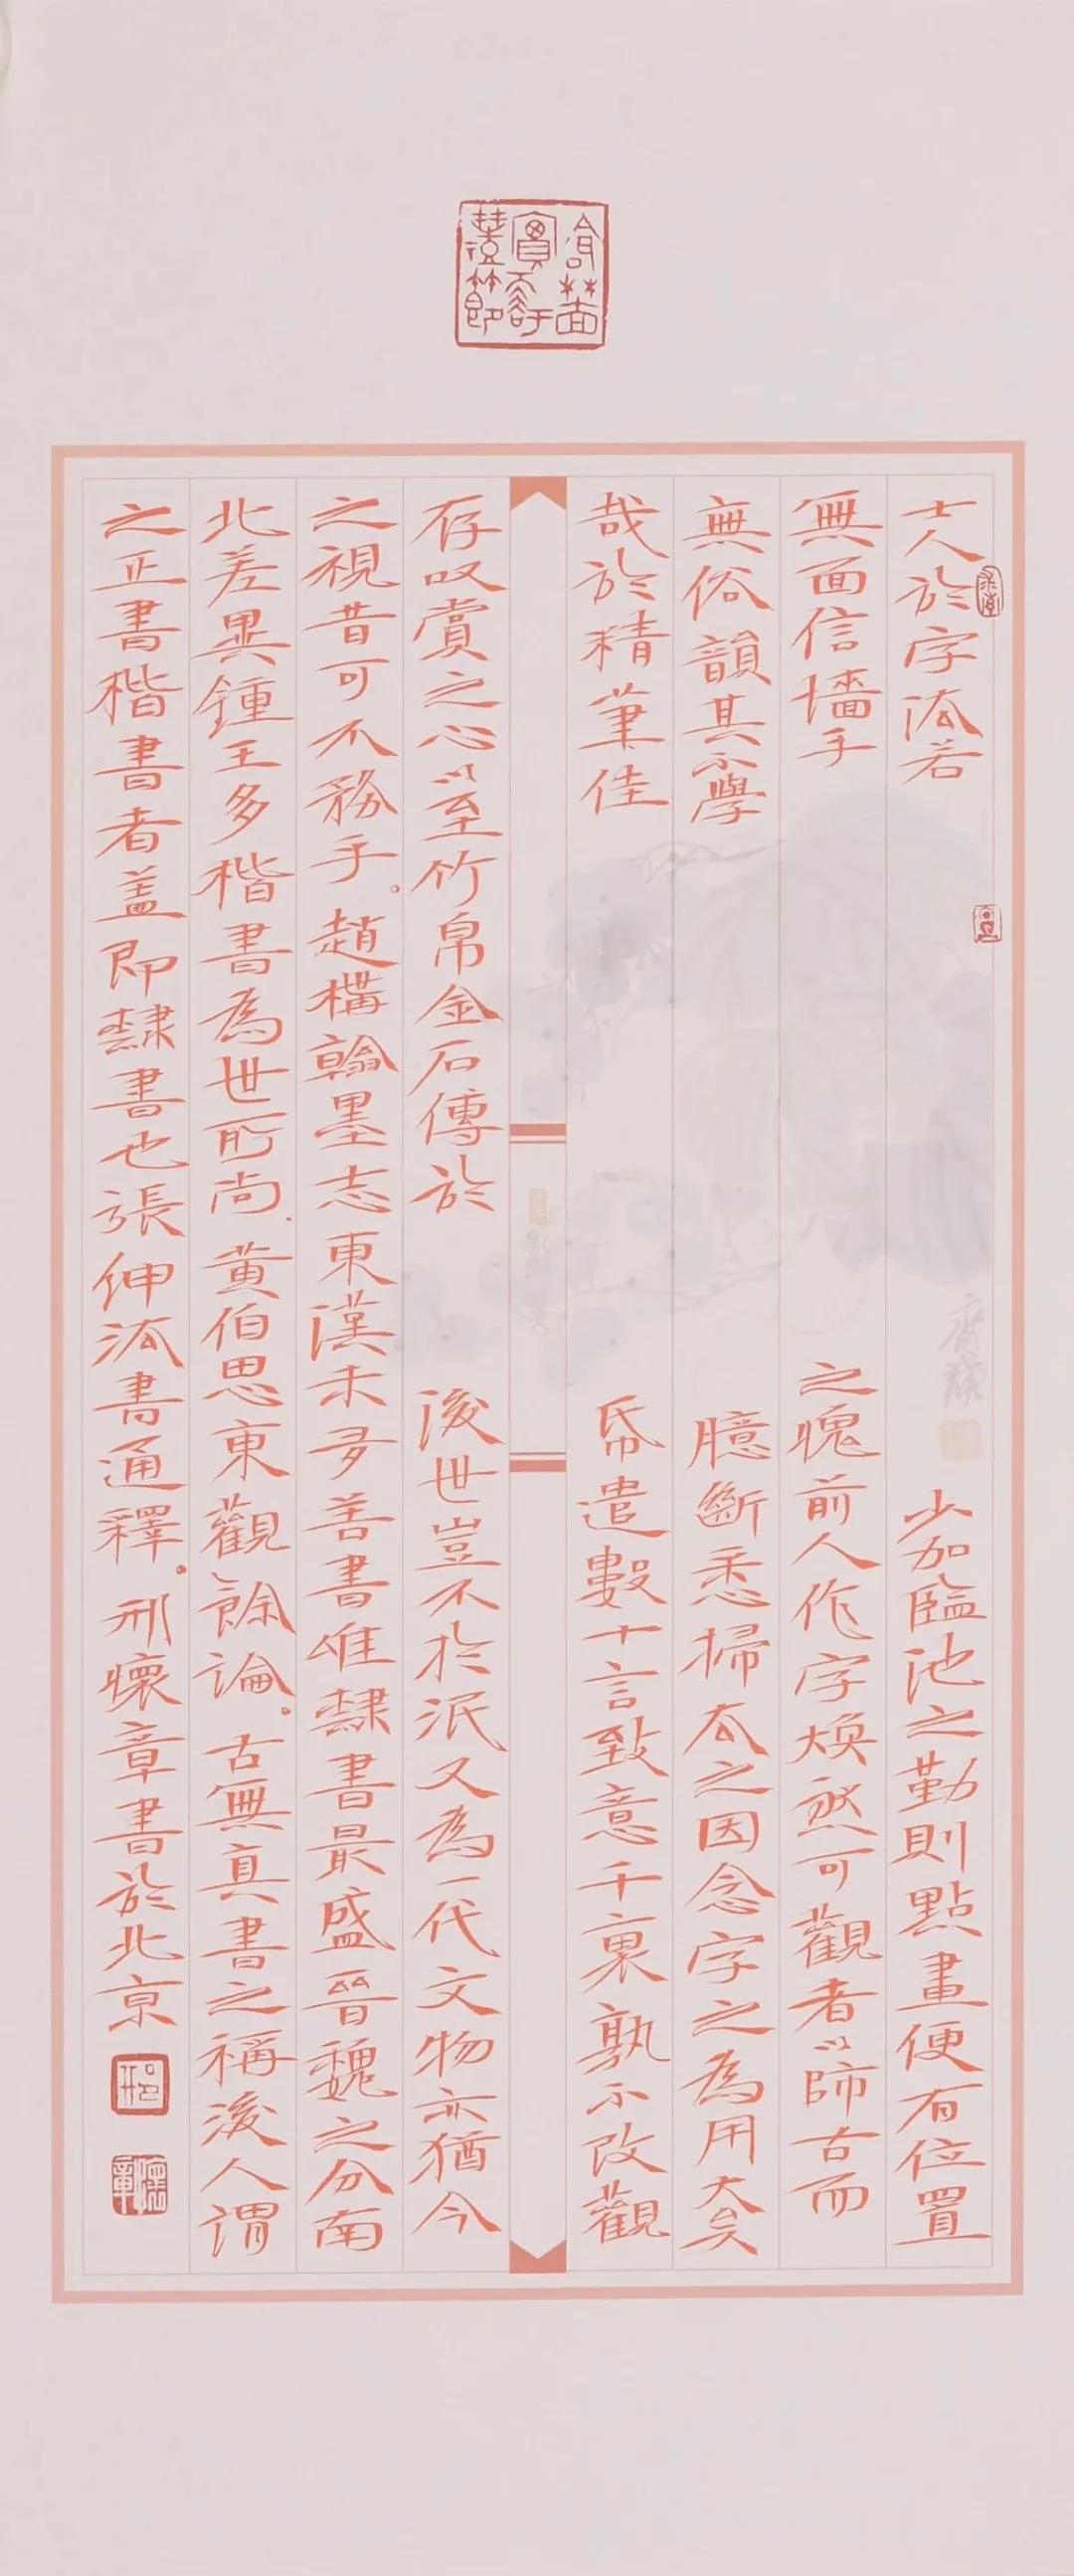 士人於字法若少加臨池之勤則點畫便有位置
無面信墻手之愧前人作字煥然可觀者以師古而
無俗韻其不學臆斷悉掃去之因念字之為用大矣
哉於精筆佳帋遣數十言致意千里孰不改觀
存叹賞之心以至竹帛金石傳於後世豈不於泯又為一代文物亦猶今
之視昔可不務乎。趙構翰墨志東漢未多善書唯隸書最盛晉魏之分南
北差異鍾王多楷書為世所尚.黃伯思東觀餘論。古無真書之稱後人謂
之正書楷書者蓋即隸書也張伸法書通釋。邢懷章書於北京
齊璜
邢
懷章